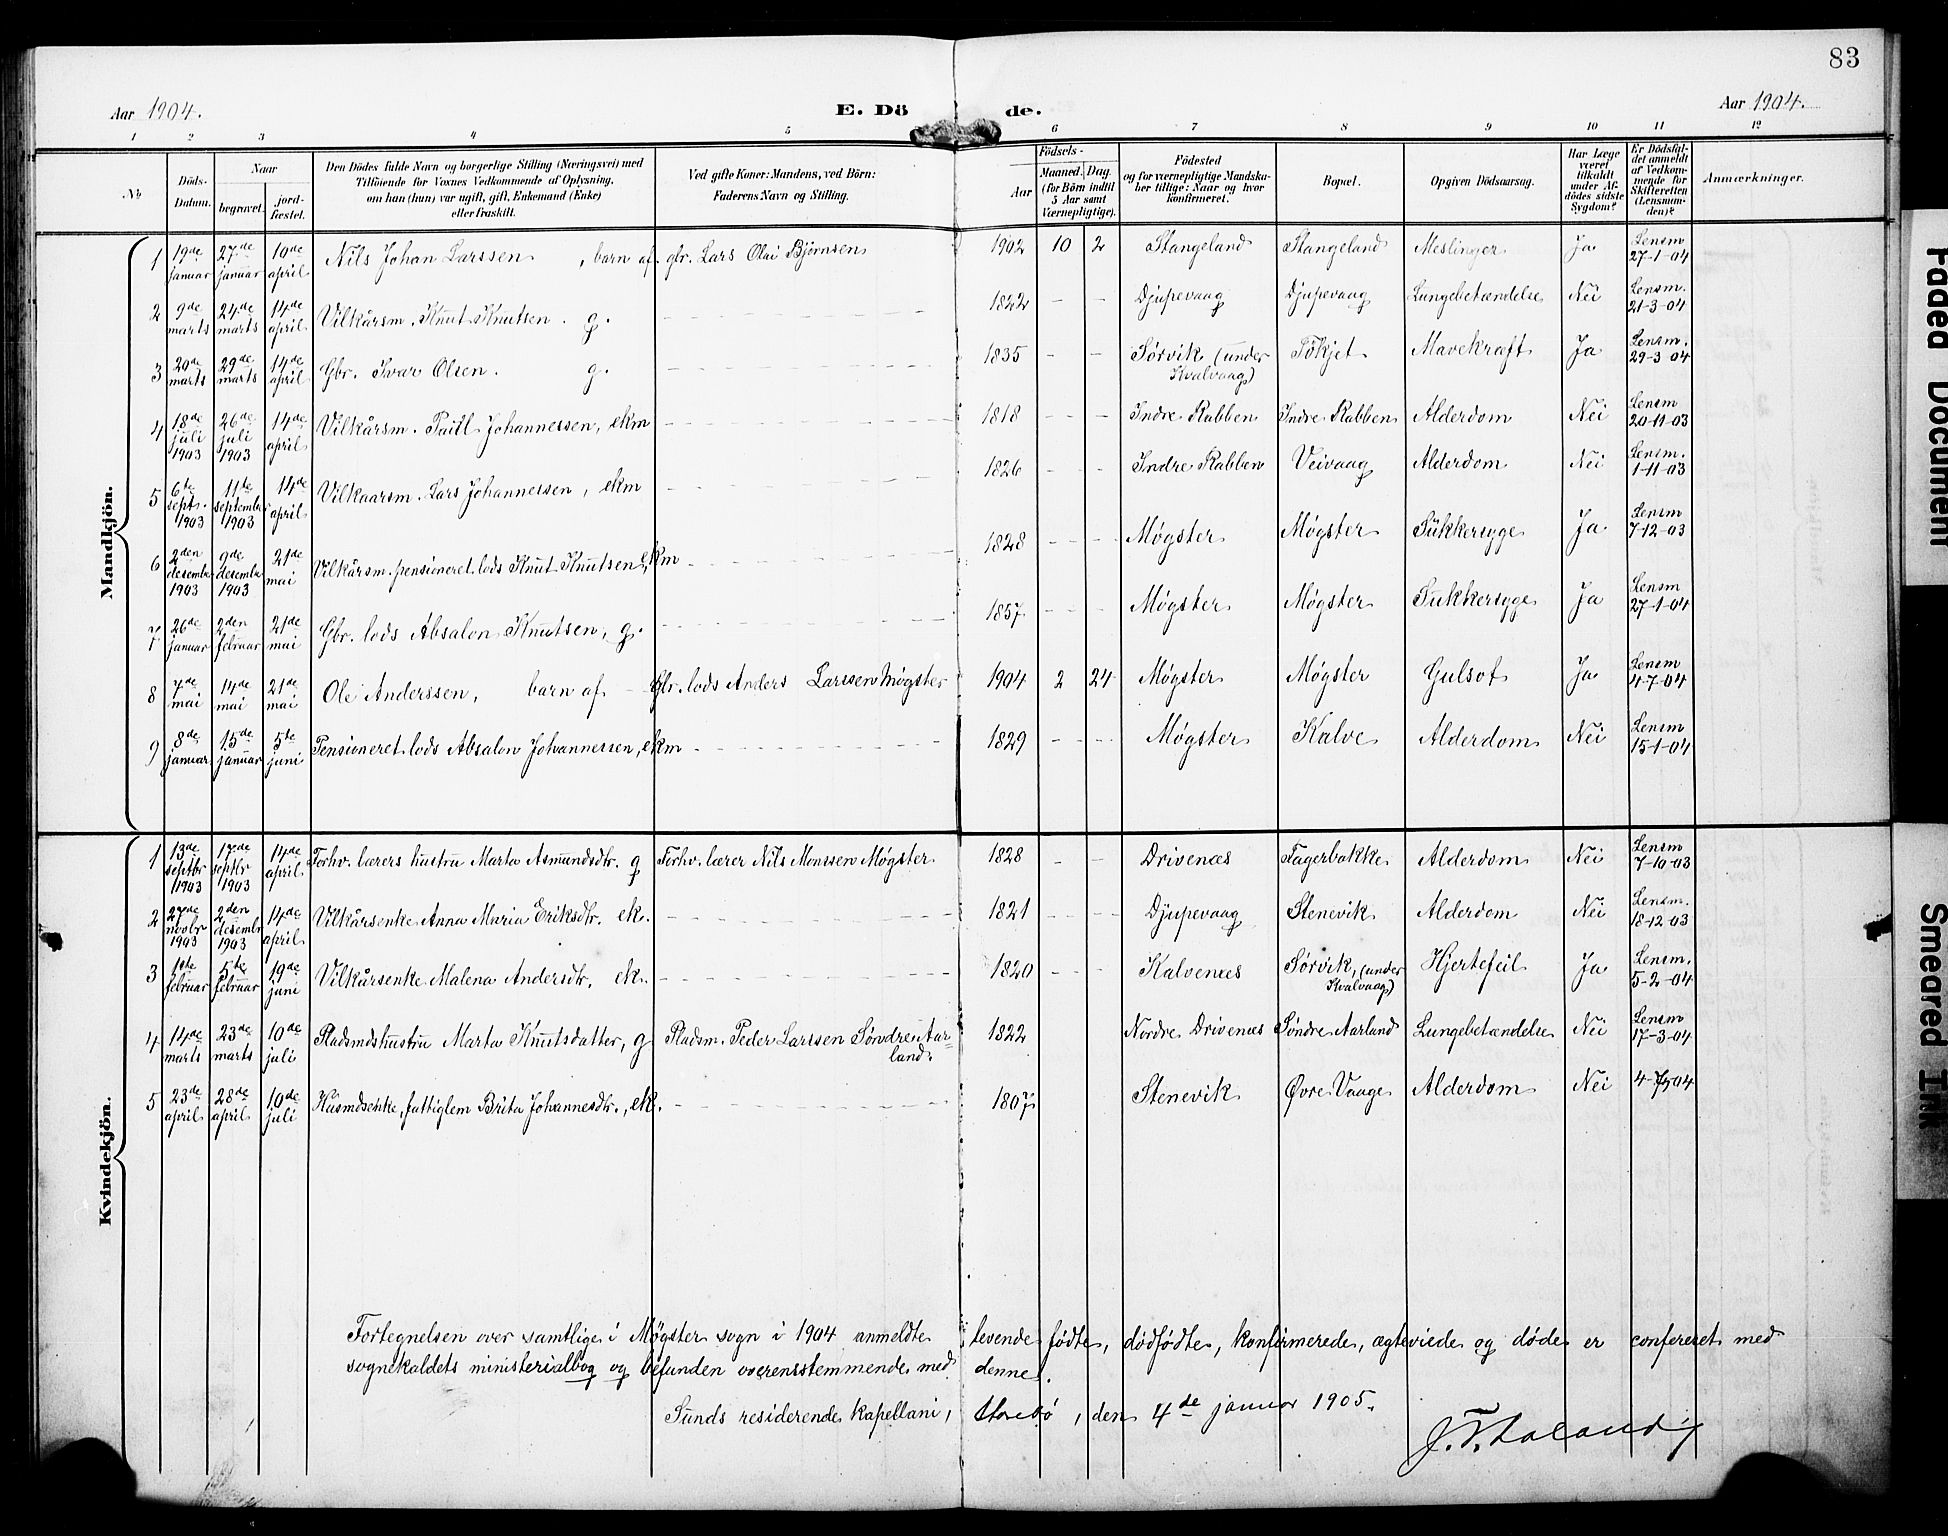 83
Aar 1904. E. Dö de. Aar 1904.
1 2 3 4 5 6 7 8 9 10 11 12
№
Döds-
Datum.
Naar
begravet. jord-
fæstet.
Den Dödes fulde Navn og borgerlige Stilling (Næringsvei) med
Tilföiende for Voxnes Vedkommende af Oplysning,
om han (hun) var ugift, gift, Enkemand (Enke)
eller fraskilt.
Ved gifte Koner: Mandens, ved Börn:
Faderens Navn og Stilling.
Födsels-
Aar
Maaned. Dag.
(for Börn indtil
5 Aar samt
Værnepligtige).
Födested
og for værnepligtige Mandska-
ber tillige: Naar og hvor
konfirmeret.
Bopæl.
Opgiven Dödsaarsag.
Har Læge
været
tilkaldt
under Af-
dödes sidste
Sygdom?
Er Dödsfal-
det anmeldt
af Vedkom-
mende for
Skifteretten
(Lensman-
den)?
Anmærkninger.
Mandkjön.
1 19de januar 27de januar 10de april Nils Johan Larssen, barn af gbr. Lars Olai Björnsen 1902 10 2 Stangeland Stangeland Meslinger Ja Lensm 27-1-04
2 9de marts 24de marts 14de april Vilkårsm. Knut Knutsen. g. 1822 - - Djupevaag Djupevaag Lungebetændelse Nei Lensm. 21-3-04
3 20de marts 29de marts 14de april Gbr. Ivar Olsen. g. 1835 - - Sørvik (under Kvalvaag) Tökjet Mavekræft Ja Lensm. 29-3 04
4 18de juli 1903 26de juli 1903 14de april Vilkårsm. Paul Johannessen, ekm 1818 - - Indre Rabben Indre Rabben Alderdom Nei Lensm 20-11-03
5 6te septr. 1903 11te september 1903 14de april Vilkaarsm. Lars Johannessen, ekm 1826 - - Indre Rabben Veivaag Alderdom Nei Lensm. 1-11-03
6 2den desember 1903 9de desember 1903 21de mai Vilkårsm. pensioneret lods Knut Knutsen, ekm 1828 - - Møgster Møgster Sukkersyge Ja Lensm 7-12-03
7 26de januar 2den februar 21de mai Gbr. lods Absalon Knutsen, g. 1857 - - Møgster Møgster Sukkersyge Ja Lensm 27-1-04
8 7de mai 14de mai 21de mai Ole Anderssen, barn af Gbr. lods Anders Larssen Møgster 1904 2 24 Møgster Møgster Gulsot Ja Lensm 4-7-04
9 8de januar 15de januar 5te juni Pensioneret lods Absalon Johannessen, ekm 1829 - - Møgster Kalve Alderdom Nei Lensm 15-1-04
Kvindekjön.
1 13de septbr 1903 17de septbr 1903 14de april Forhv. lærers hustru Marta Asmundsdtr. g Forhv. lærer Nils Monssen Møgster 1828 - - Drivenæs Fagerbakke Alderdom Nei Lensm 7-10-03
2 27de novbr 1903 2den desembr 1903 14de april Vilkårsenke Anna Maria Eriksdtr. ek. 1821 - - Djupevaag Stenevik Alderdom Nei Lensm. 18-12-03
3 1ste februar 5te februar 19de juni Vilkårsenke Malena Andersdtr. ek. 1820 - - Kalvenæs Sørvik, (under Kvalvaag) Hjertefeil Ja Lensm. 5-2-04
4 14de marts 23de marts 10de juli Pladsmdshustru Marta Knutsdatter, g Pladsm. Peder Larssen Søndre Aarland 1822 Nordre Drivenæs Søndre Aarland Lungebetændelse Nei Lensm 17-3-04
5 23de april 28de april 10de juli Husmdsenke, fattiglem Brita Johannesdtr., ek. 1807 Stenevik Øvre Vaage Alderdom Nei
Fortegnelsen over samtlige i Møgster sogn i 1904 anmeldte levende fødte, dödfödte, konfirmerede, ægteviede og døde er confereret med
sognekaldets ministerialbog og befunden overensstemmende med denne.
Sunds residerende kapellani, Storebø, den 4de januar 1905.
Faded Document
Smeared Ink